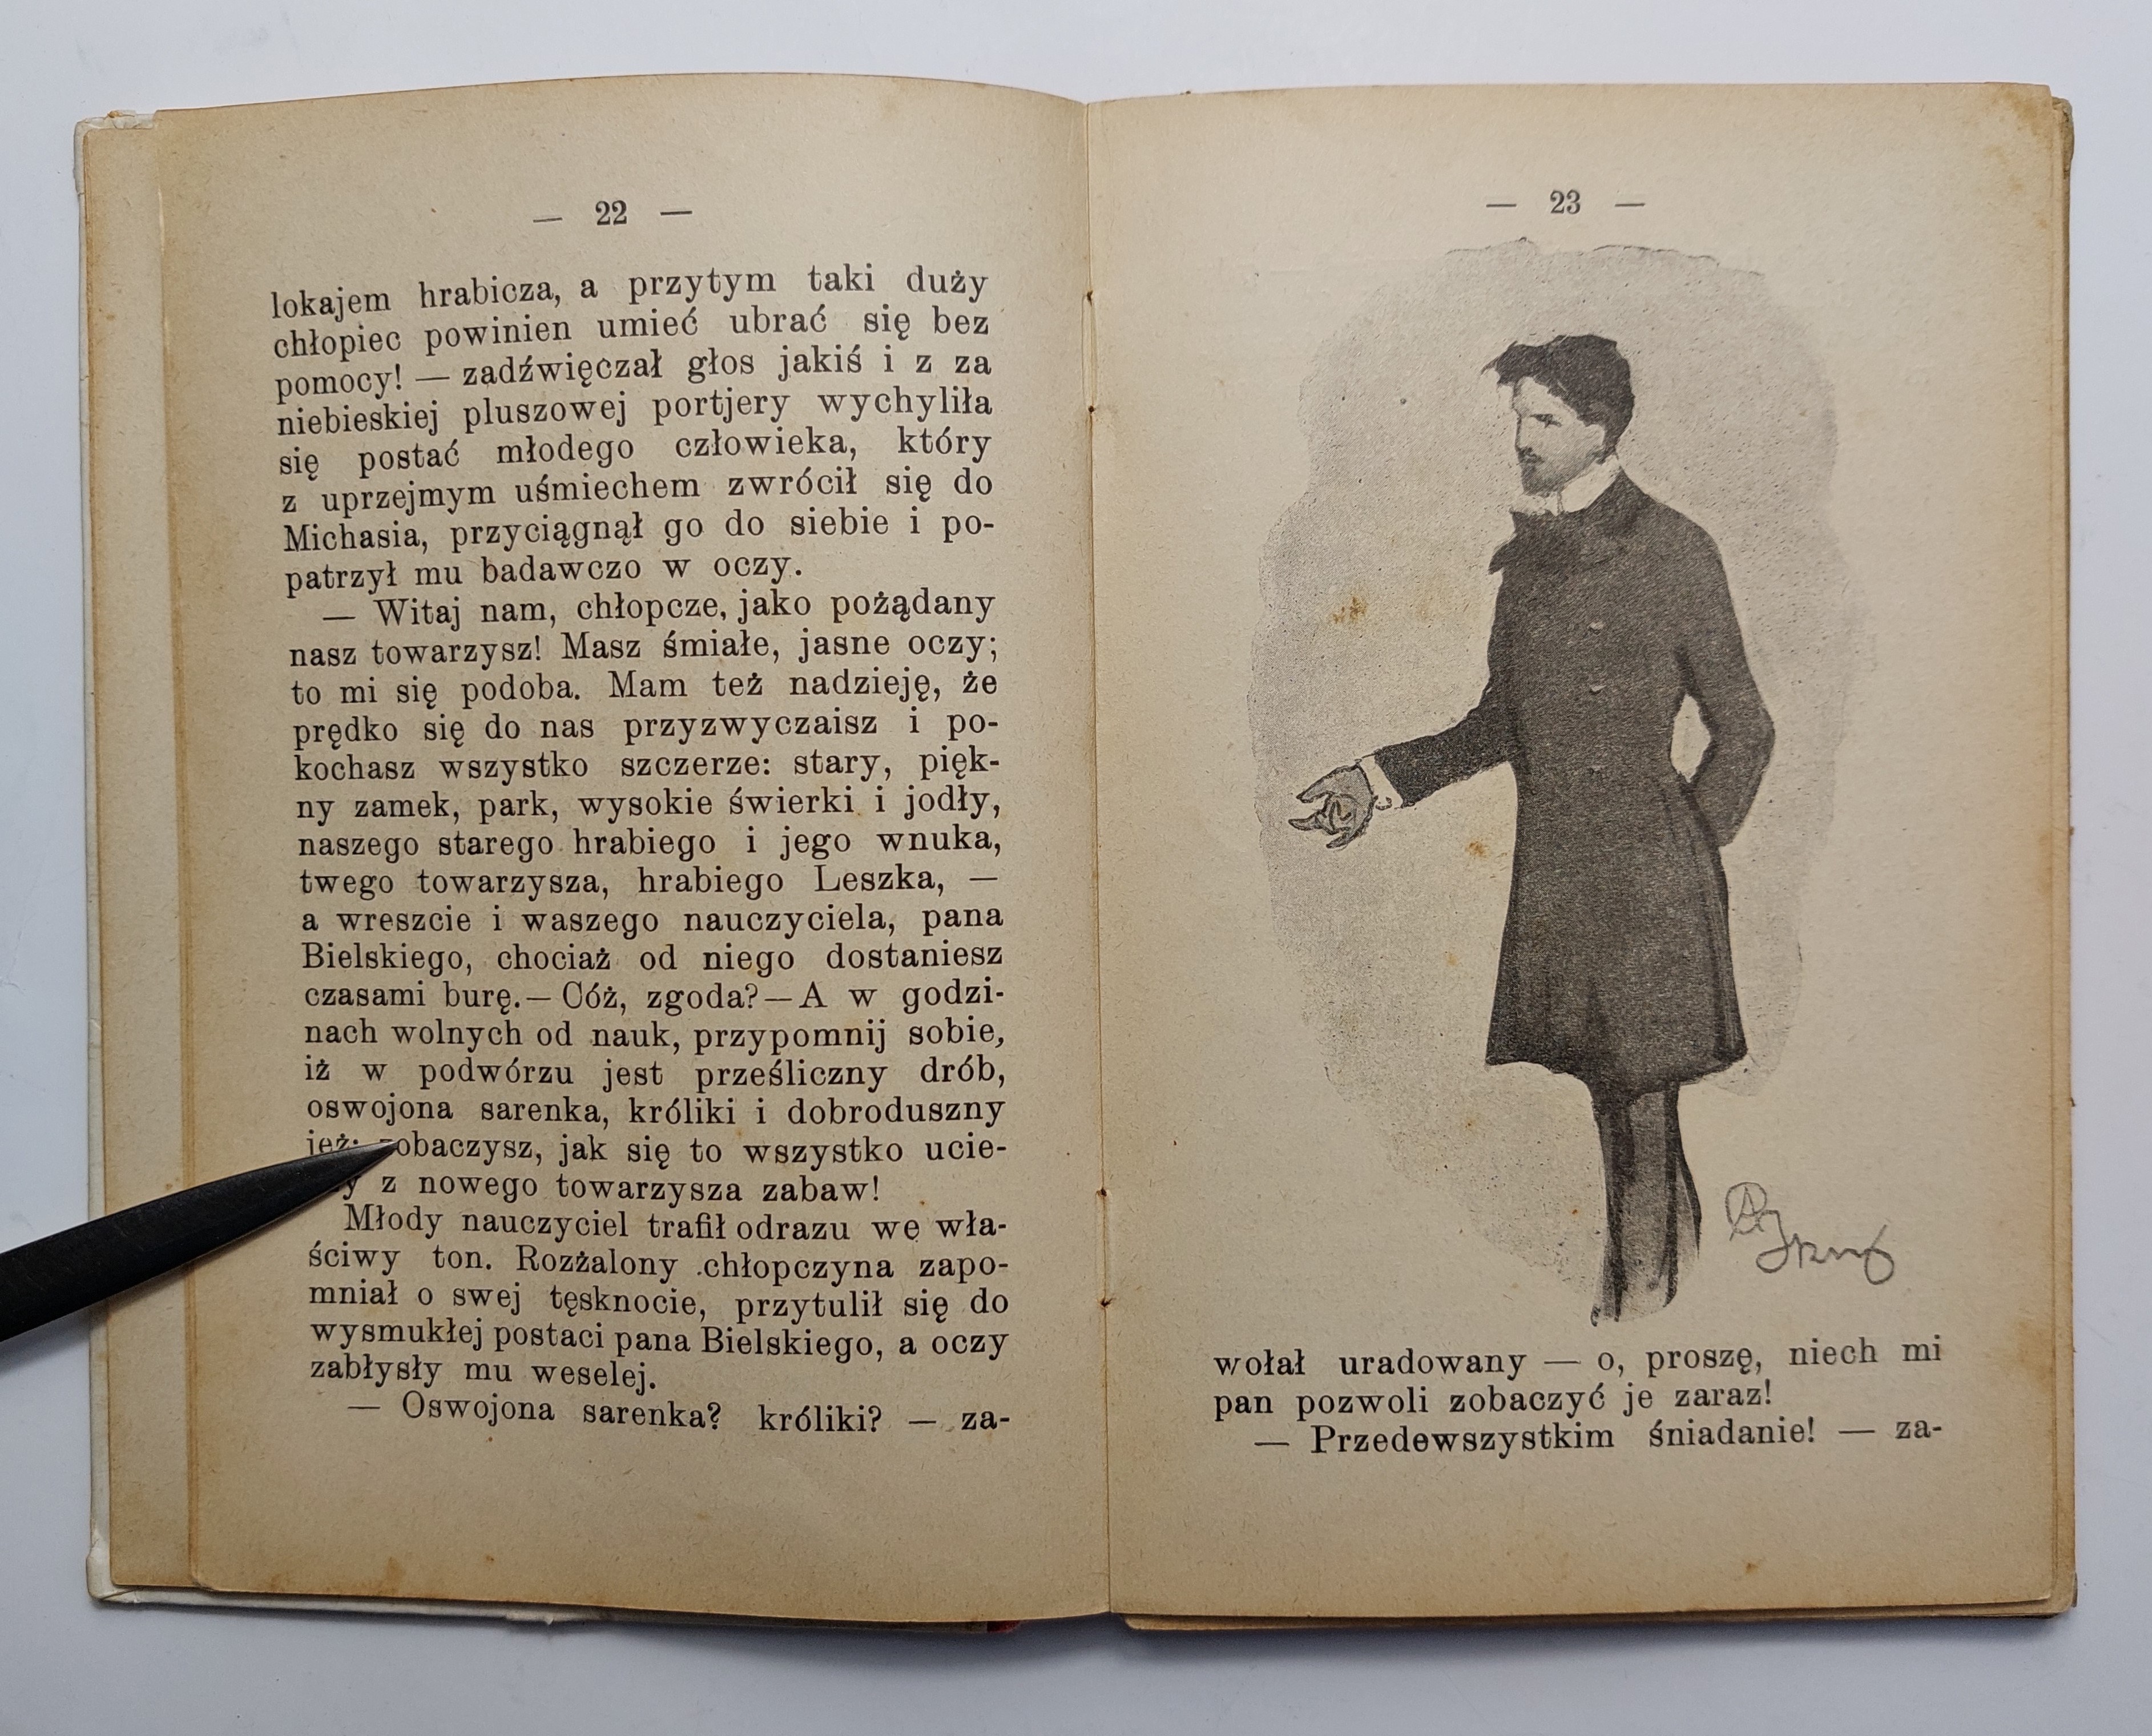 — 22 —
lokajem hrabicza, a przytym taki duży
chłopiec powinien umieć ubrać się bez
pomocy! — zadźwięczał głos jakiś i z za
niebieskiej pluszowej portjery wychyliła
się postać młodego człowieka, który
z uprzejmym uśmiechem zwrócił się do
Michasia, przyciągnął go do siebie i po-
patrzył mu badawczo w oczy.
— Witaj nam, chłopcze, jako pożądany
nasz towarzysz! Masz śmiałe, jasne oczy;
to mi się podoba. Mam też nadzieję, że
prędko się do nas przyzwyczaisz i po-
kochasz wszystko szczerze: stary, pięk-
ny zamek, park, wysokie świerki i jodły,
naszego starego hrabiego i jego wnuka,
twego towarzysza, hrabiego Leszka, —
a wreszcie i waszego nauczyciela, pana
Bielskiego, chociaż od niego dostaniesz
czasami burę.— Cóż, zgoda?—A w godzi-
nach wolnych od nauk, przypomnij sobie,
iż w podwórzu jest prześliczny drób,
oswojona sarenka, króliki i dobroduszny
jeż; zobaczysz, jak się to wszystko ucie-
z nowego towarzysza zabaw!
Młody nauczyciel trafił odrazu we wła-
ściwy ton. Rozżalony chłopczyna zapo-
mniał o swej tęsknocie, przytulił się do
wysmukłej postaci pana Bielskiego, a oczy
zabłysły mu weselej.
— Oswojona sarenka? króliki? — za-
— 23 —
wołał uradowany — o, proszę, niech mi
pan pozwoli zobaczyć je zaraz!
— Przedewszystkim śniadanie! — za-